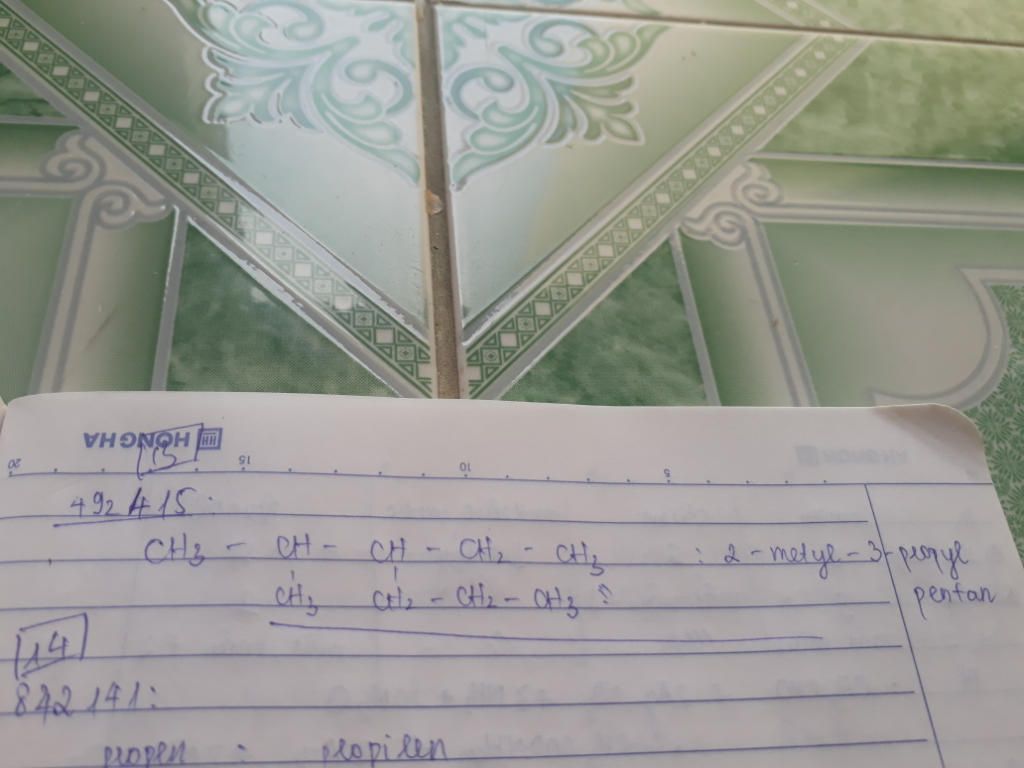 HONG HA
20 15 10 5
13
492 415:
CH3 - CH - CH - CH2 - CH3 : 2 - metyl - 3 - propyl
CH3 CH2 - CH2 - CH3 ? pentan
14
842 141:
propen : propilen